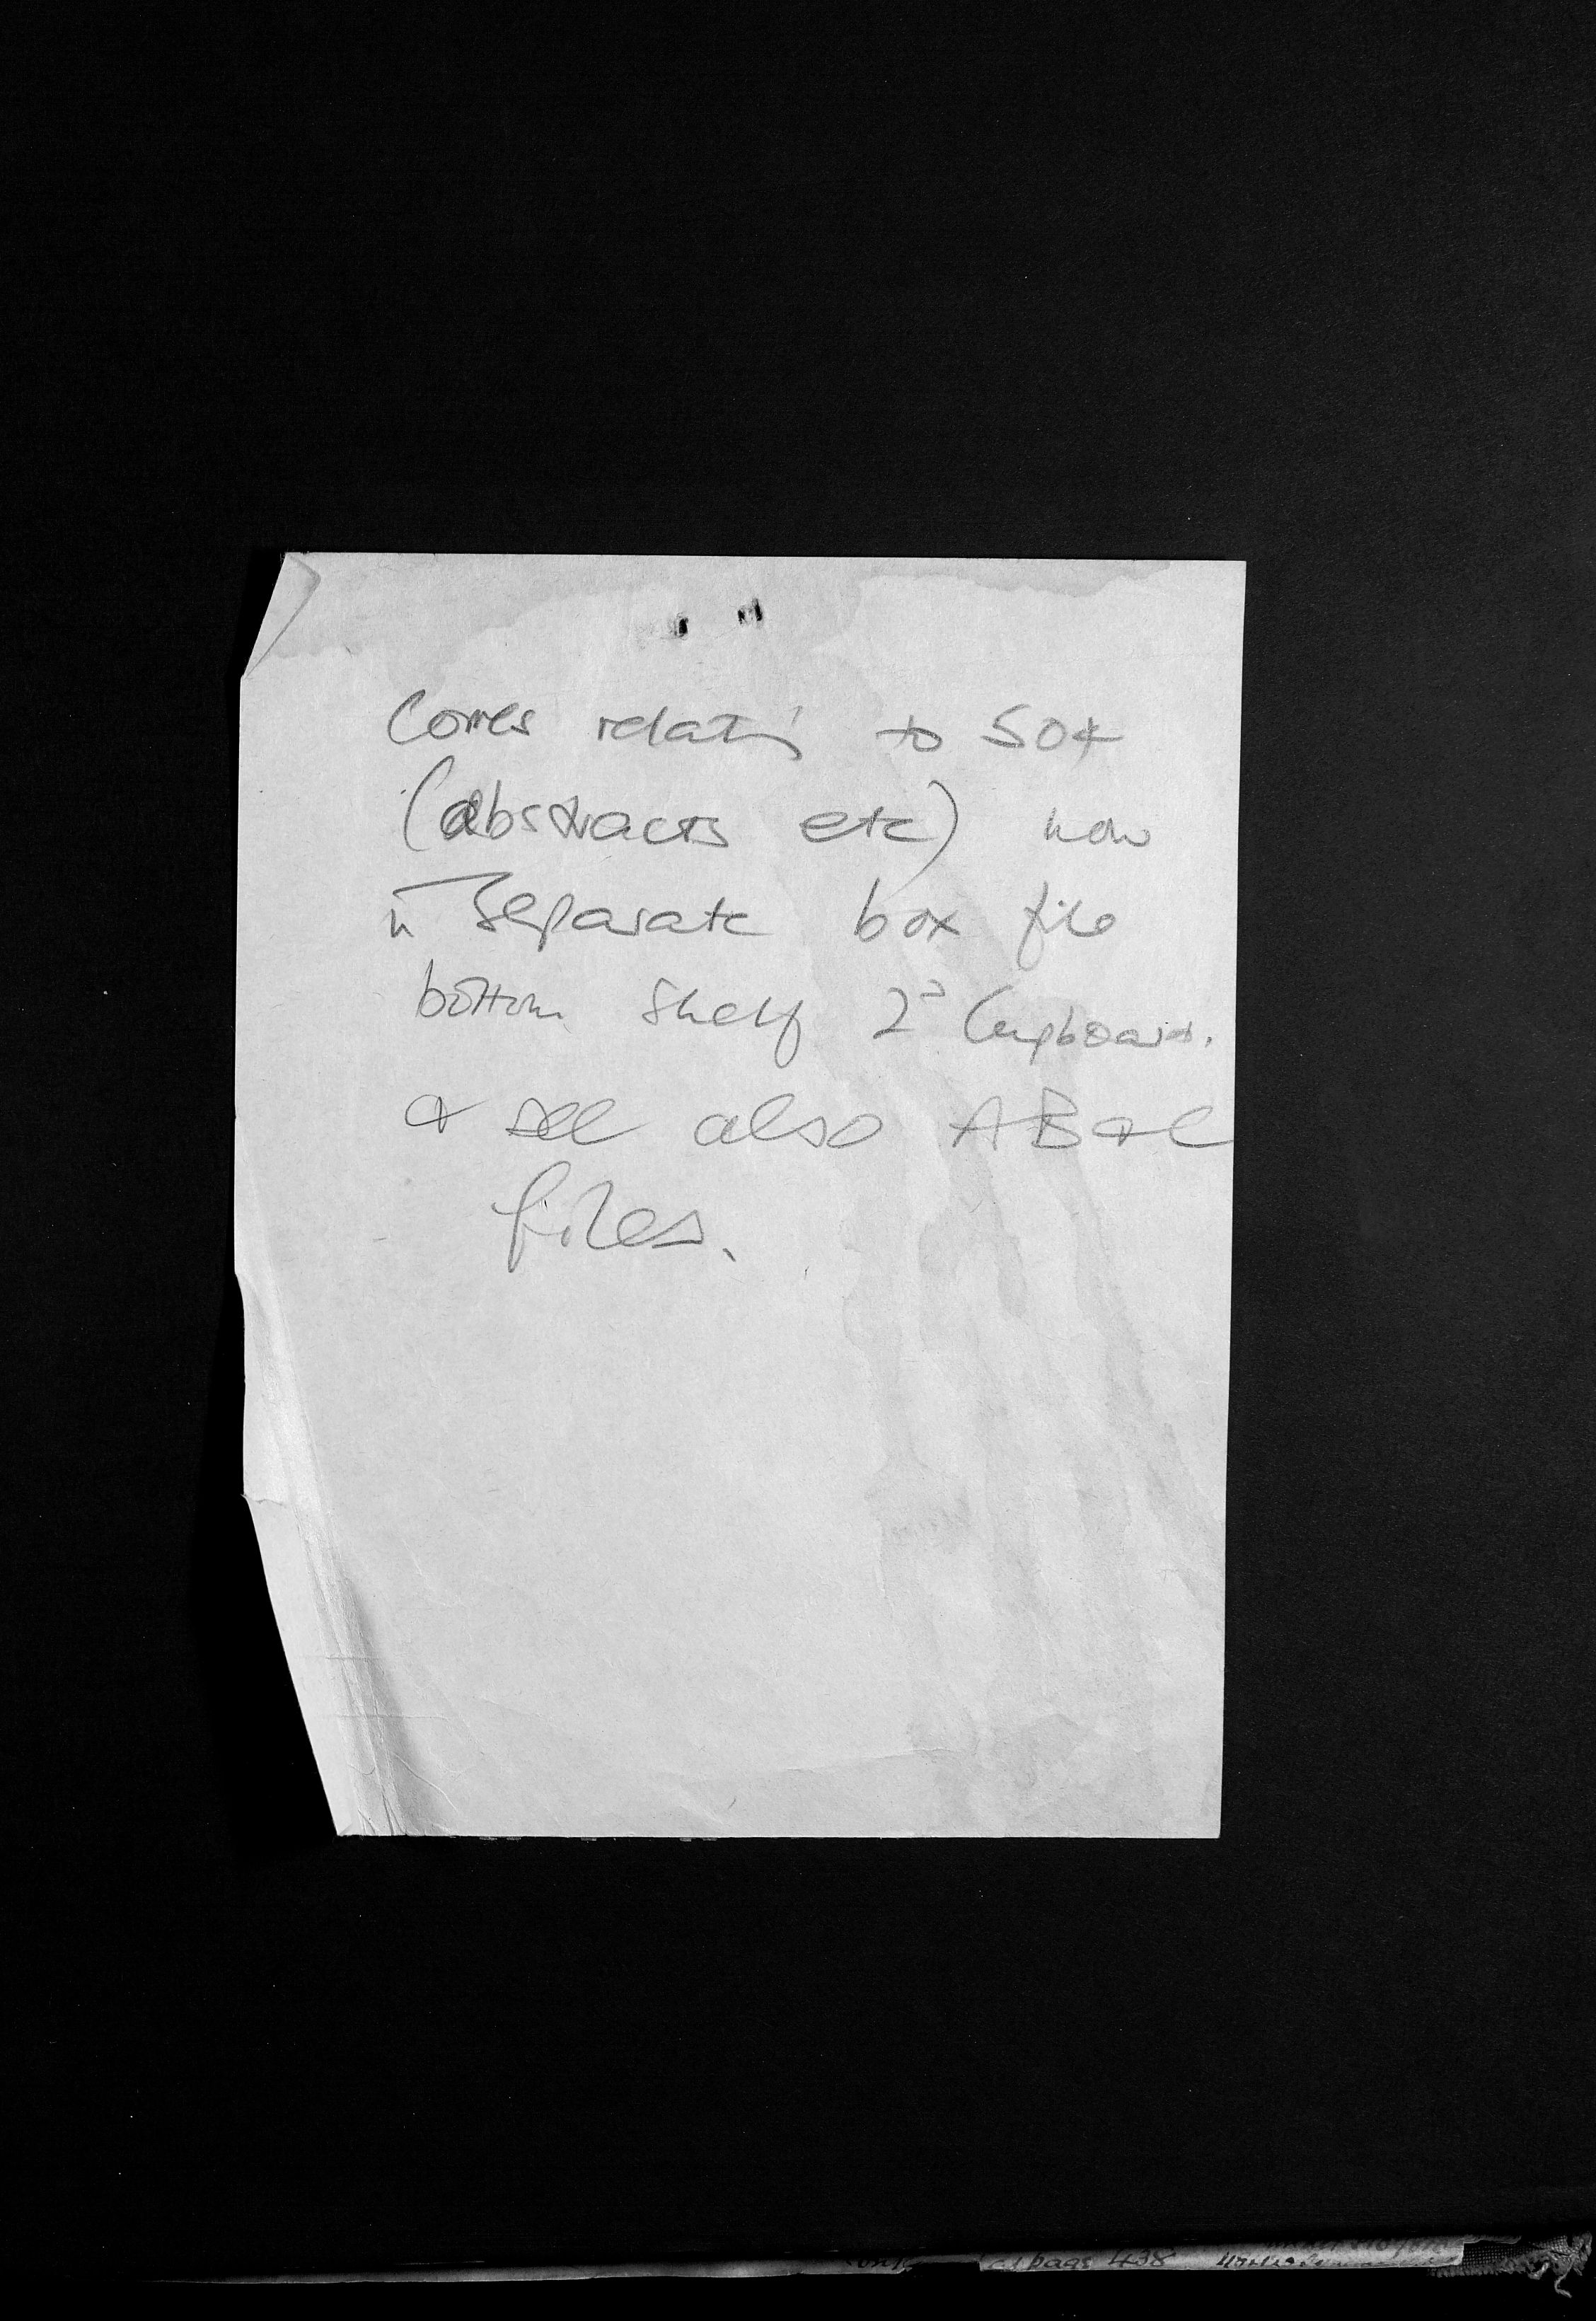 Corres relatg to 504
(abstracts etc) now
in separate box file
bottom shelf 2nd Cupboard.
& see also AB&C
files.